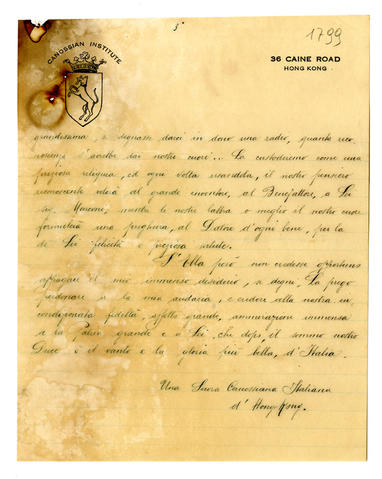 3
1799
CANOSSIAN INSTITUTE
36 CAINE ROAD
HONG KONG
grandissima e degnasse darci in dono una radio, quanta rico
noscenza s'avrebbe dai nostri cuori... La custodiremo come una
preziosa reliquia, ed ogni volta si accendda, il nostro pensiero
riconoscente volerà al grande inventore, al Benefattore, a Lei
Sig. Marconi; mentre le nostre labbra o meglio il nostro cuore
formolerà una preghiera, al Datore d'ogni bene, per la
di Lei felicità e preziosa salute.
S'Ella però non credesse opportuno
appagare il mio immenso desiderio, si degni, La prego
perdonare a la mia audacia, e credere alla nostra in
condizionata fedeltà, affetto grande, ammirazione immensa
a la Patria grande e a Lei, che dopo il sommo nostro
Duce è il vanto e la gloria più bella, d'Italia.
Una Suora Canossiana Italiana
d'Hong Kong.